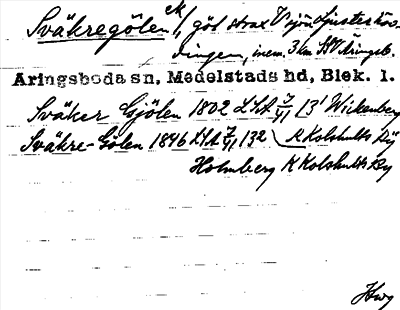 Sväkregölen ek/, göl strax V sjön Ljustersö-
dingen, inem. 3 km SV Åringsb.
Aringsboda sn, Medelstads hd, Blek. l.
Sväker Gjölen 1802 LSA 7/VI 13' Wickenberg
Sväkre-Gölen 1846 LSA 7/VI 132 R Kolshults By
Holmberg R Kolshults By
Hwg